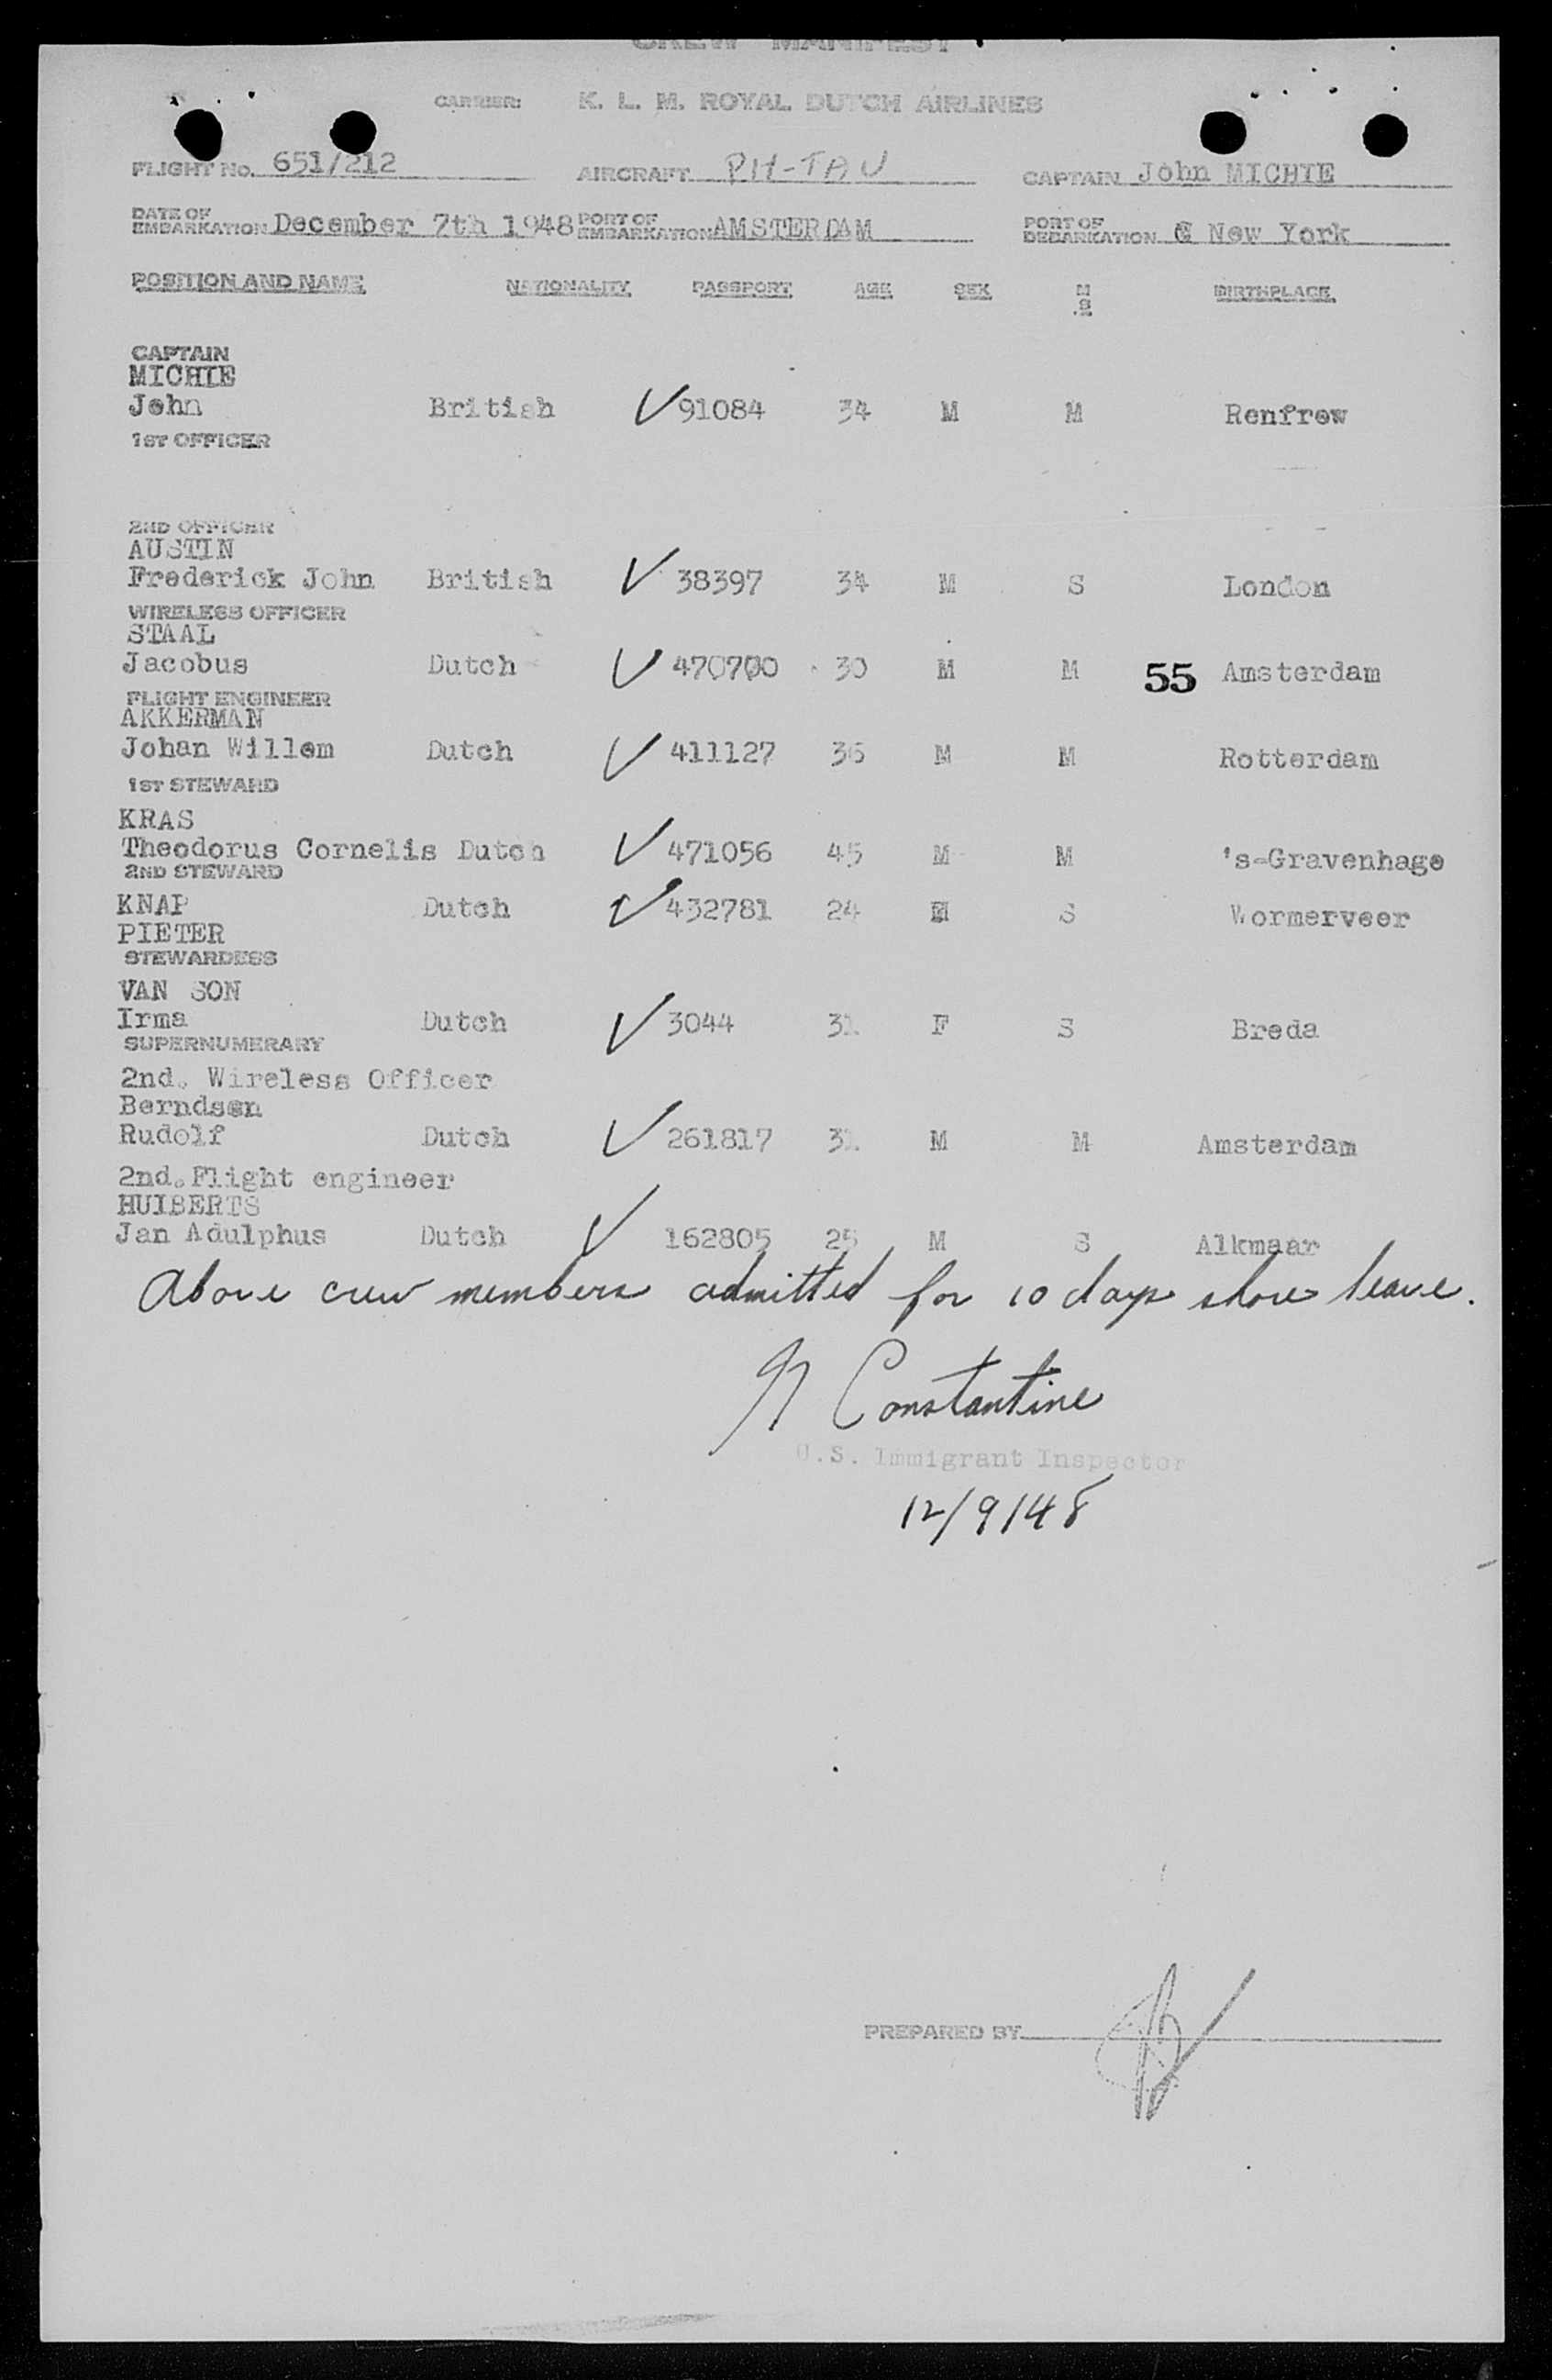 CREW MANIFEST
CARRIER: K. L. M. ROYAL DUTCH AIRLINES
FLIGHT No. 651/212 AIRCRAFT PH-TAU CAPTAIN John MICHIE
DATE OF EMBARKATION December 7th 1948 PORT OF EMBARKATION AMSTERDAM PORT OF DEBARKATION New York
POSITION AND NAME NATIONALITY PASSPORT AGE SEX M S BIRTHPLACE
CAPTAIN
MICHIE
John British ✓ 91084 34 M M Renfrew
1ST OFFICER
2ND OFFICER
AUSTIN
Frederick John British ✓ 38397 34 M S London
WIRELESS OFFICER
STAAL
Jacobus Dutch ✓ 470700 30 M M 55 Amsterdam
FLIGHT ENGINEER
AKKERMAN
Johan Willem Dutch ✓ 411127 36 M M Rotterdam
1ST STEWARD
KRAS
Theodorus Cornelis Dutch ✓ 471056 45 M M 's-Gravenhage
2ND STEWARD
KNAP Dutch ✓ 432781 24 M S Wormerveer
PIETER
STEWARDESS
VAN SON
Irma Dutch ✓ 3044 31 F S Breda
SUPERNUMERARY
2nd. Wireless Officer
Berndsen
Rudolf Dutch ✓ 261817 31 M M Amsterdam
2nd. Flight engineer
HUIBERTS
Jan Adulphus Dutch ✓ 162805 25 M S Alkmaar
Above crew members admitted for 10 days shore leave.
N Constantine
U.S. Immigrant Inspector
12/9/48
PREPARED BY